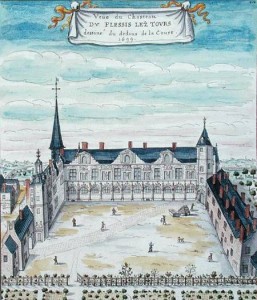 Veüe du Chasteau
DU PLESSIS LEZ TOURS
dessiné du dedans de la Court
1699.